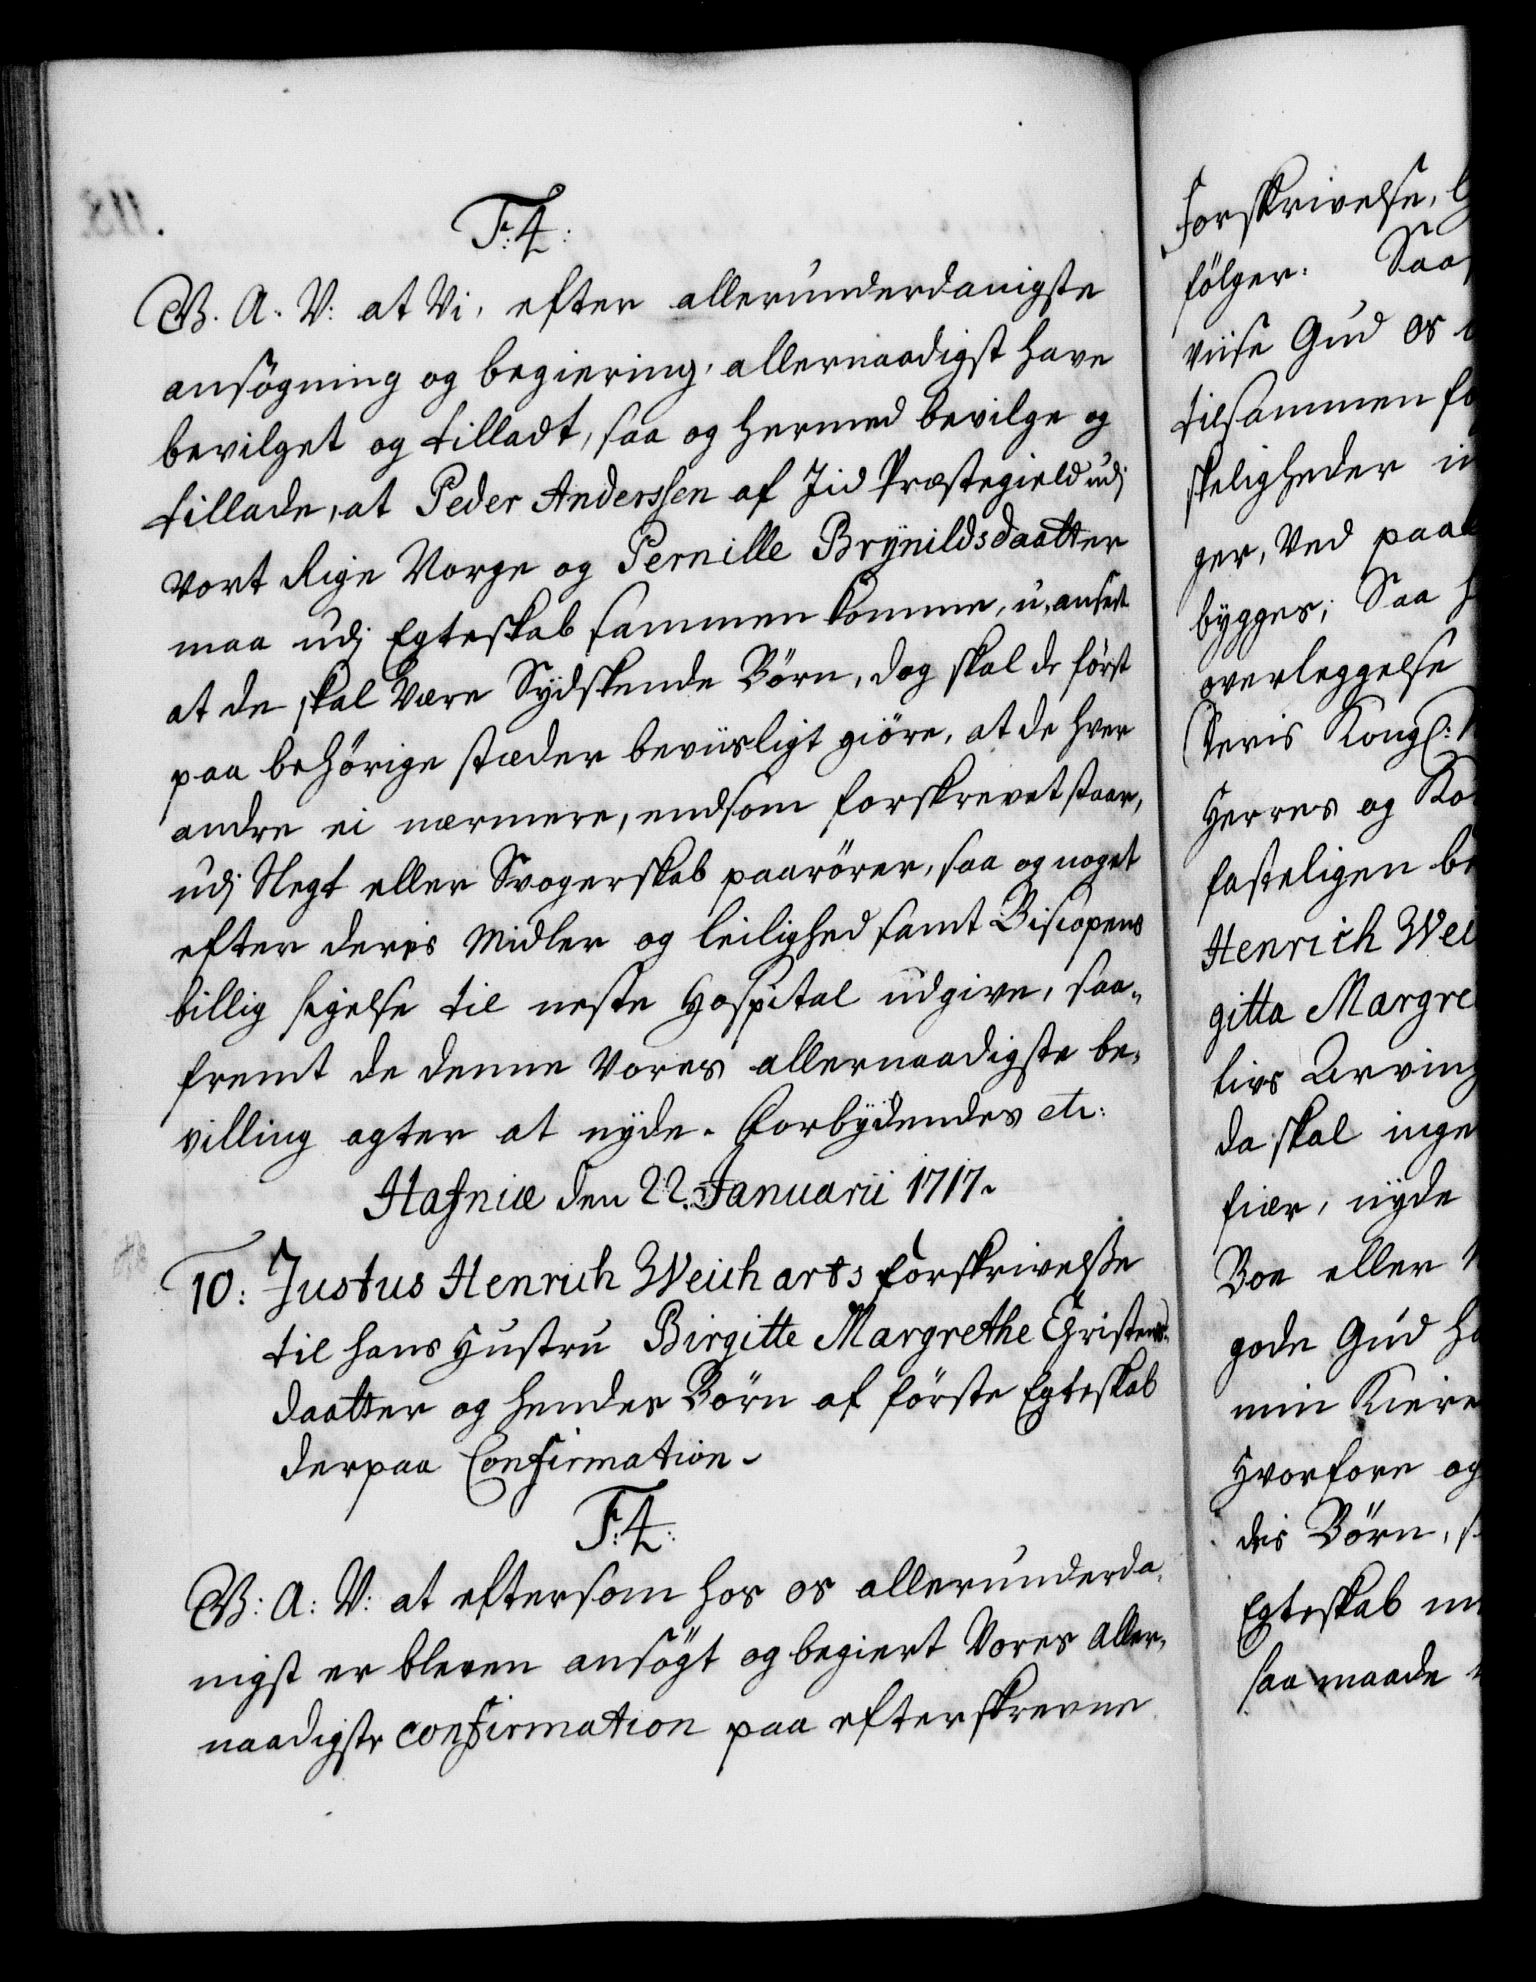 F: 4:
G. A. V: at Vi, efter allerunderdanigste
ansögning og begiering, allernaadigst have
bevilget og tilladt, saa og hermed bevilge og
tillade, at Peder Anderssen af Jid Præstegield udj
vort Rige Norge og Pernille Brÿnildsdaatter
maa udj Egteskab sammen komme, u,anseet
at de skal være Sydskende Börn, dog skal de först
paa behörige stæder beviisligt giöre, at de hver
andre ei nærmere, endsom forskrevet staar,
udj Slegt eller Svogerskab paarörer, saa og noget
efter deris Midler og leilighed samt Biscopens
billig sigelse til neste Hospital udgive, saa-
fremt de denne Vores allernaadigste be-
villing agter at nÿde. Forbÿdendes etc:
Hafniæ den 22. Januarii 1717.
10: Justus Henrich Weicharts forskrivelsse
til hans Hustru Birgitte Margrethe Christens-
daatter og hendes Börn af förste Egteskab
derpaa Confirmation.
F: 4:
G: A: V: at eftersom hos os allerunderda-
nigst er bleven ansögt og begiert Vores aller-
naadigste confirmation paa efterskrevne
Forskrivelse,
fölger. Saa
viise Gud os
tilsammen
skeligheder
ger, Ved
bygges; Saa
overleggelse
(Deris Kongl:
Herres og
fasteligen
Henrich
gitta
livs Arving
da skal
fier, nÿde
Boe eller
gode Gud
min Kiere
Hvorfore og
des Börn,
Egteskab
saa maade